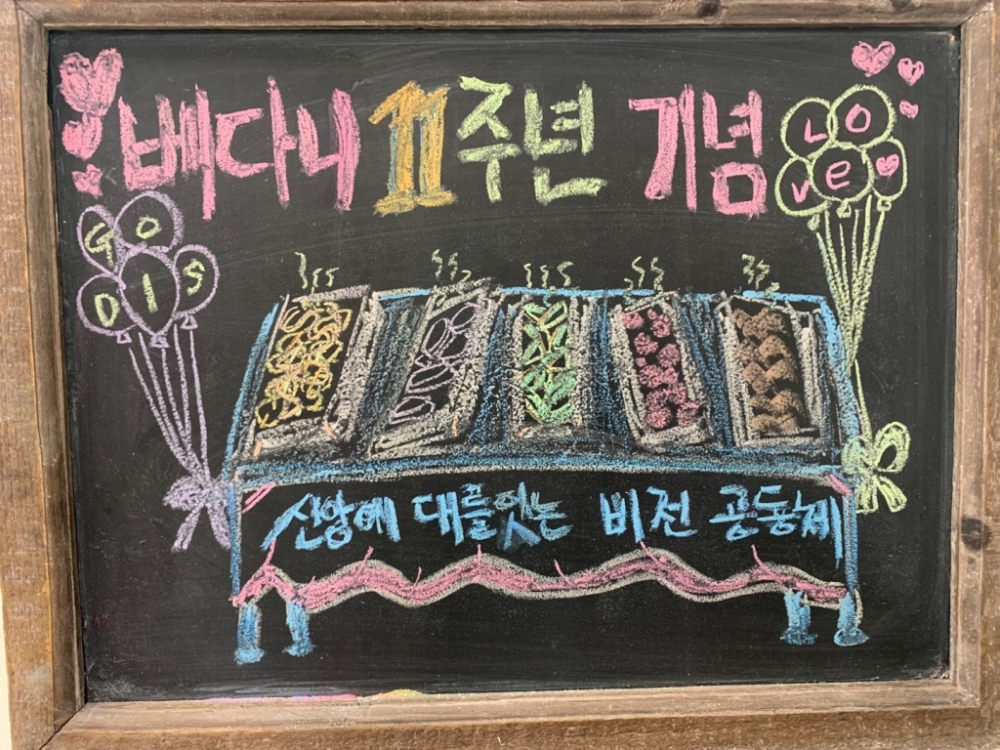 베다니 11주년 기념
LO
ve
GO
DIS
신앙에 대를잇는 비전 공동체